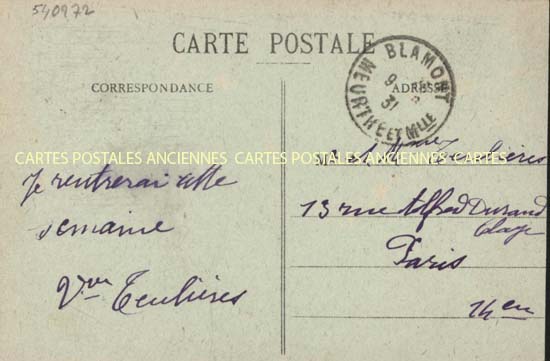 540972
CARTE POSTALE
CORRESPONDANCE
ADRESSE
BLAMONT
MEURTHE ET MLLE
9
31
CARTES POSTALES ANCIENNES CARTES POSTALES ANCIENNES CARTES POSTALES
Mr & Mme Teulières
Je rentrerai cette
semaine
Vve Teulières
13 rue Alfred Durand
Claye
Paris
14 eme